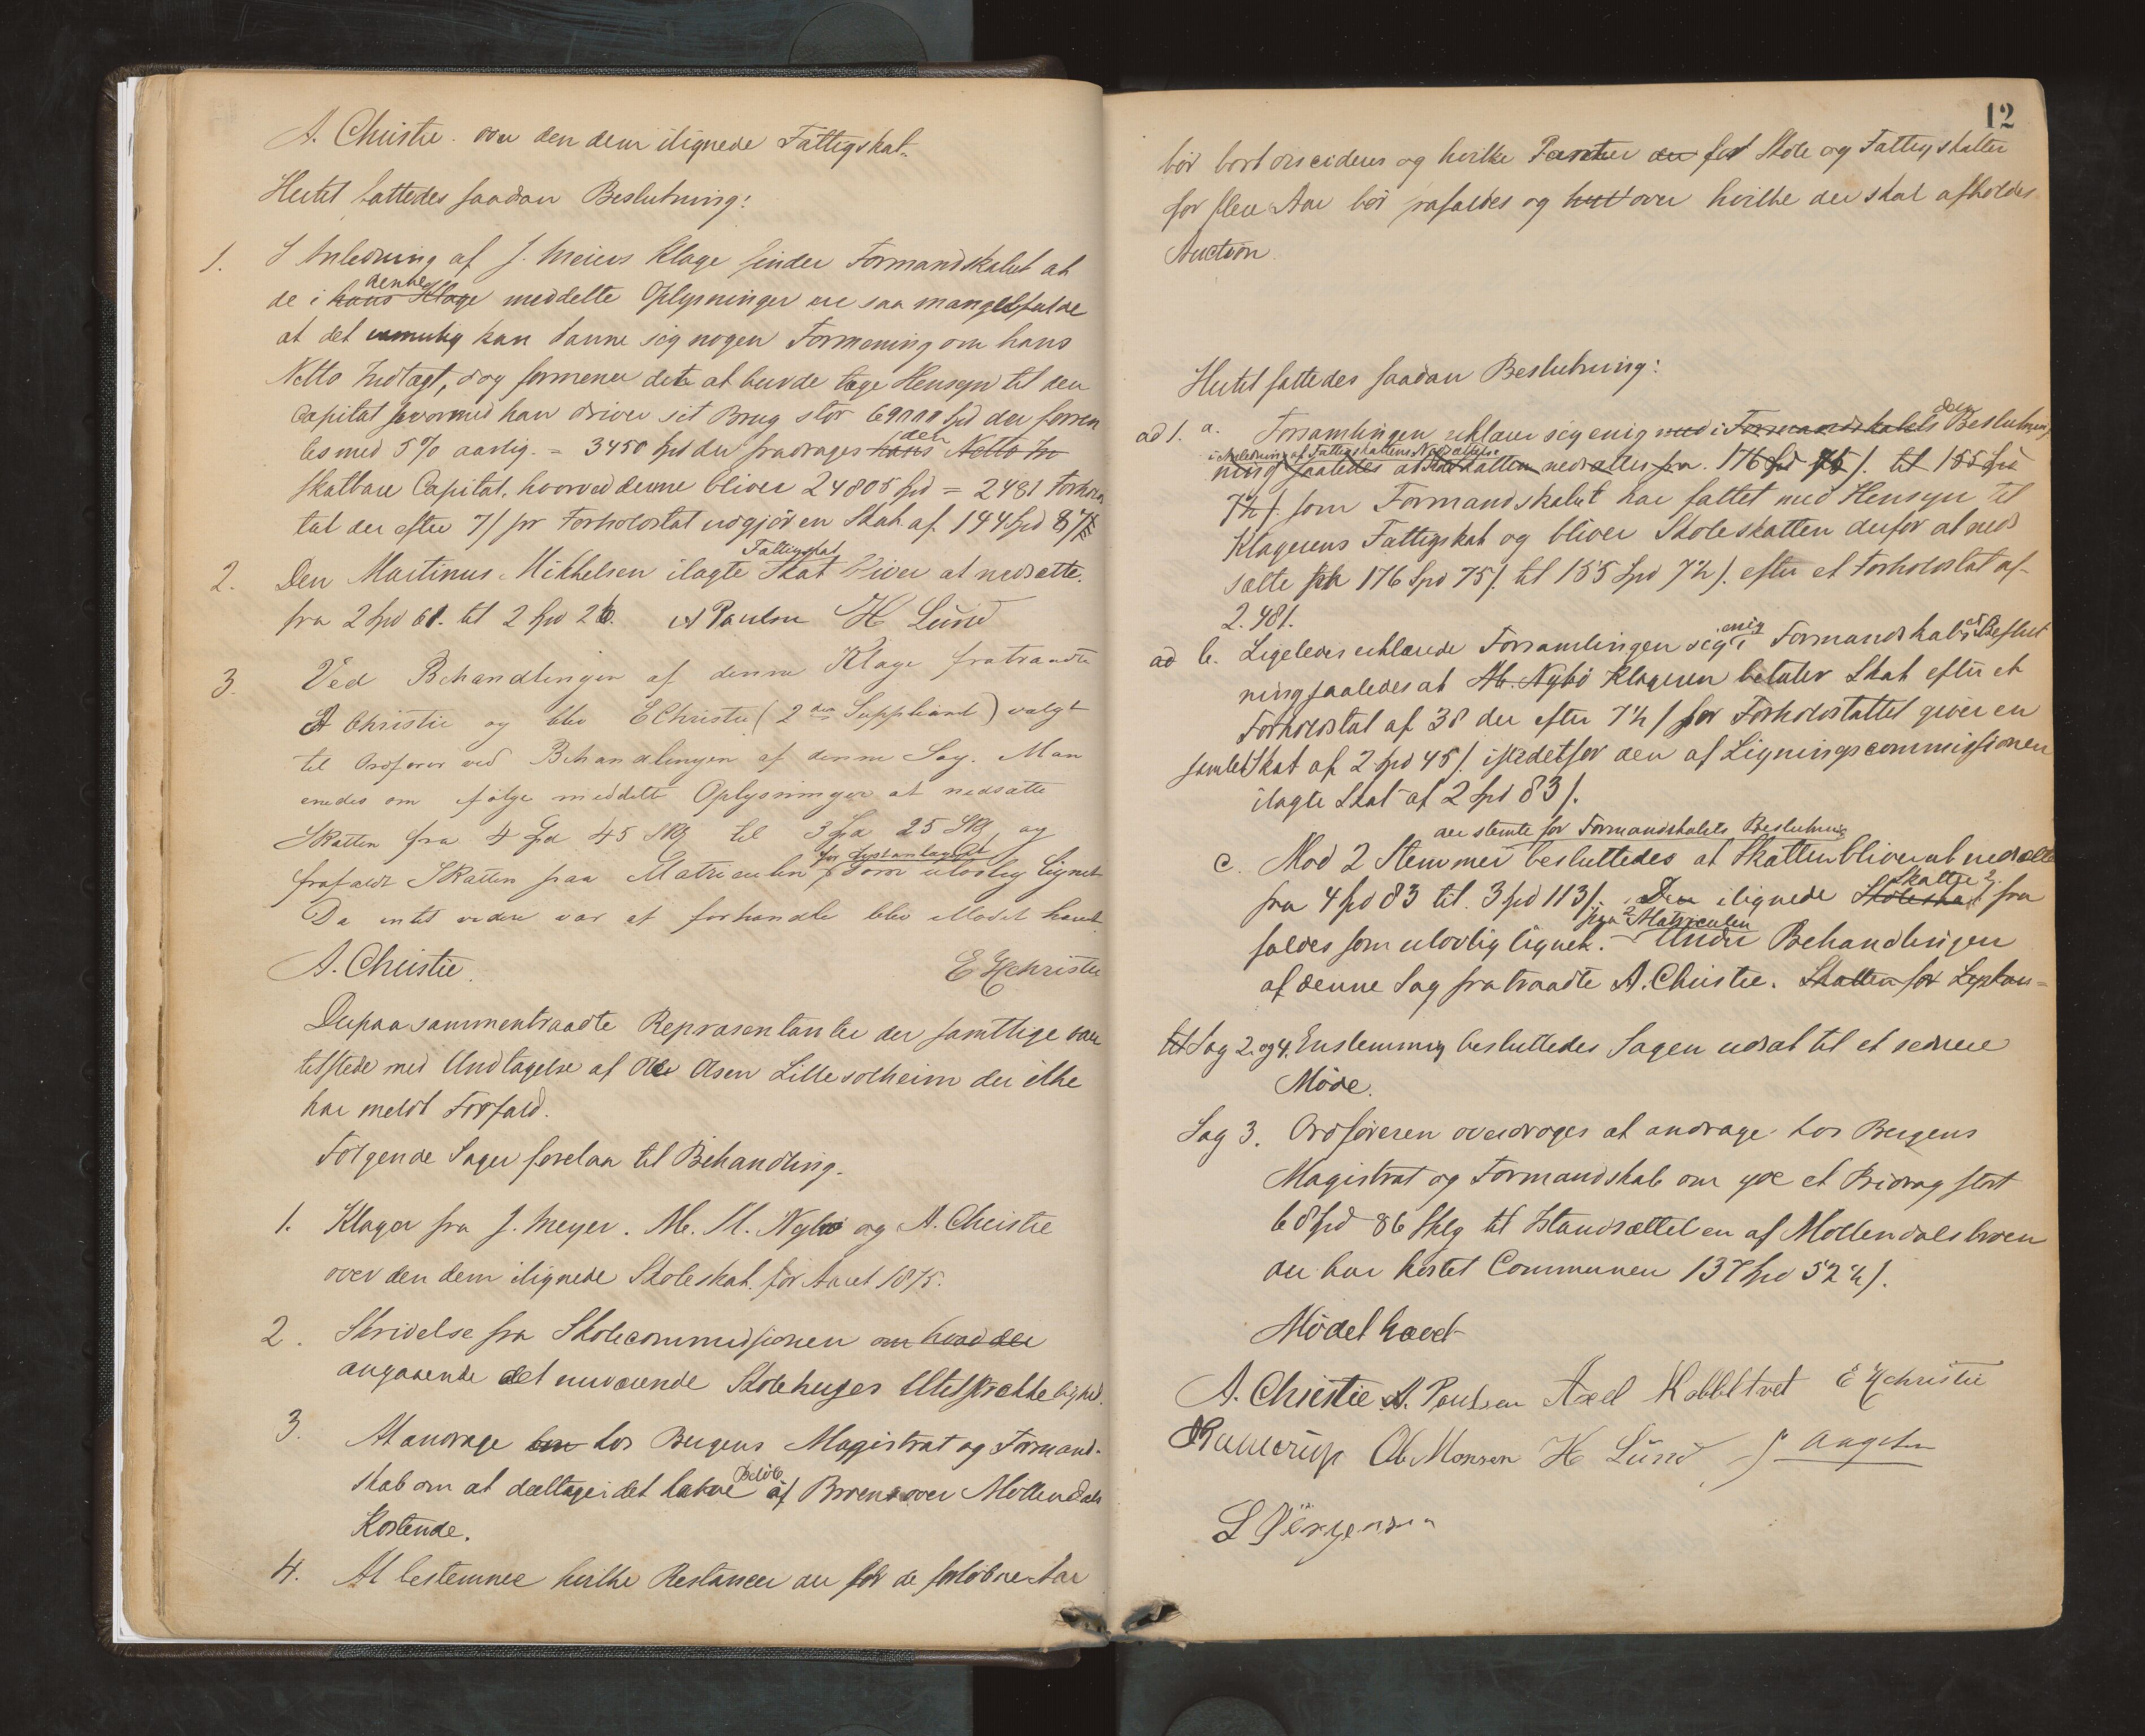 A. Christie over den dem ilignede Fattigskat.
Hertil fattedes saadan Beslutning:
1. I Anledning af J. Meiers Klage finder Formandskabet at
denne
de i hans Klage meddelte Oplysninger ere saa mangelfulde
at det umulig kan danne sig nogen Formening om hans
Netto Indtægt, dog formener dets at burde tage Hensyn til den
Capital hvormed han driver sit Brug stor 69000 Spd der forren
tes med 5% aarlig = 3450 Spd der fradrages hans Netto In
den
skatbare Capital, hvorved denne bliver 24805 Spd = 2481 Forholds
tal der efter 7 ß pr Forholdstal udgjør en Skat af 144 Spd 87 ß
2. Den Martinus Mikkelsen ilagte Skat bliver at nedsætte
Fattigskat
fra 2 Spd 61. til 2 Spd 26. A Paulsen H Lund
3. Ved Behandlingen af denne Klage fratraadte
A Christie og blev E Christie (2den Suppliant) valgt
til Ordfører ved Behandlingen af denne Sag. Man
enedes om ifølge meddelte Oplysninger at nedsætte
Skatten fra 4 Spd 45 Skg til 3 Spd 25 Skg, og
for Lystanlægget
frafaldt Skatten paa Matriculen som ulovlig lignet
Da intet videre var at forhandle blev Mødet hævet
A. Christie. E Christie
Derpaa sammentraadte Repræsentanter der samtlige vare
tilstede med Undtagelse af Ole Olsen Lillesolheim der ikke
har meldt Forfald.
Følgende Sager forelaa til Behandling.
1. Klager fra J. Meyer. M. M. Nybø og A. Christie
over den dem ilignede Skoleskat for Aaret 1875.
2. Skrivelse fra Skolecommissionen om hvad der
angaaende det nuværende Skolehuses Utilstrækkelighed.
3. At andrage om hos Bergens Magistrat og Formand-
skab om at deeltage i det halve Beløb af Broen over Møllendals
Kostende.
4. At bestemme hvilke Restancer der for de forløbne Aar
12
bør bort decideres og hvilke Panter der for Skole og Fattigskatter
for flere Aar bør frafaldes og hvil over hvilke der skal afholdes
Auction.
Hertil fattedes saadan Beslutning:
ad 1. a. Forsamlingen erklærer sig enig med i Formandskabets den Beslutning
i Anledning af Fattigskattens Nedsættelse
ning saaledes at Skoleskatten nedsættes fra 176 Spd 75 ß. til 155 Spd
7½ ß. som Formandskabet har fattet med Hensyn til
Klagerens Fattigskat og bliver Skoleskatten derfor at ned
sætte fra 176 Spd 75 ß. til 155 Spd 7½ ß. efter et Forholdstal af
2.481.
ad b. Ligeledes erklærede Forsamlingen sig enig i Formandskabets Beslut
ning saaledes at M. Nybø Klageren betaler Skat efter et
Forholdstal af 38 der efter 7½ ß for Forholdstallet giver en
samlet Skat af 2 Spd 45 ß. istedetfor den af Ligningscommissionen
ilagte Skat af 2 Spd 83 ß.
der stemte for Formandskabets Beslutning
c. Mod 2 Stemmer besluttedes at Skatten bliver at nedsætte
fra 4 Spd 83 til 3 Spd 113 ß. Den ilignede Skoleskat Skatte fra
paa Matriculen
faldes som ulovlig lignet. Under Behandlingen
af denne Sag fratraadte A. Christie. Skatten for Lystan=
til Sag 2 og 4. Enstemmig besluttedes Sagen udsat til et senere
Møde.
Sag 3. Ordføreren overdroges at andrage hos Bergens
Magistrat og Formandskab om yde et Bidrag stort
68 Spd 86 Skg til Istandsættelsen af Møllendalsbroen
der har kostet Communen 137 Spd 52½ ß.
Mødet hævet
A. Christie A. Paulsen Axel Kobbeltvet E Christie
Ole Monsen H Lund J Angeltun
L Jørgensen